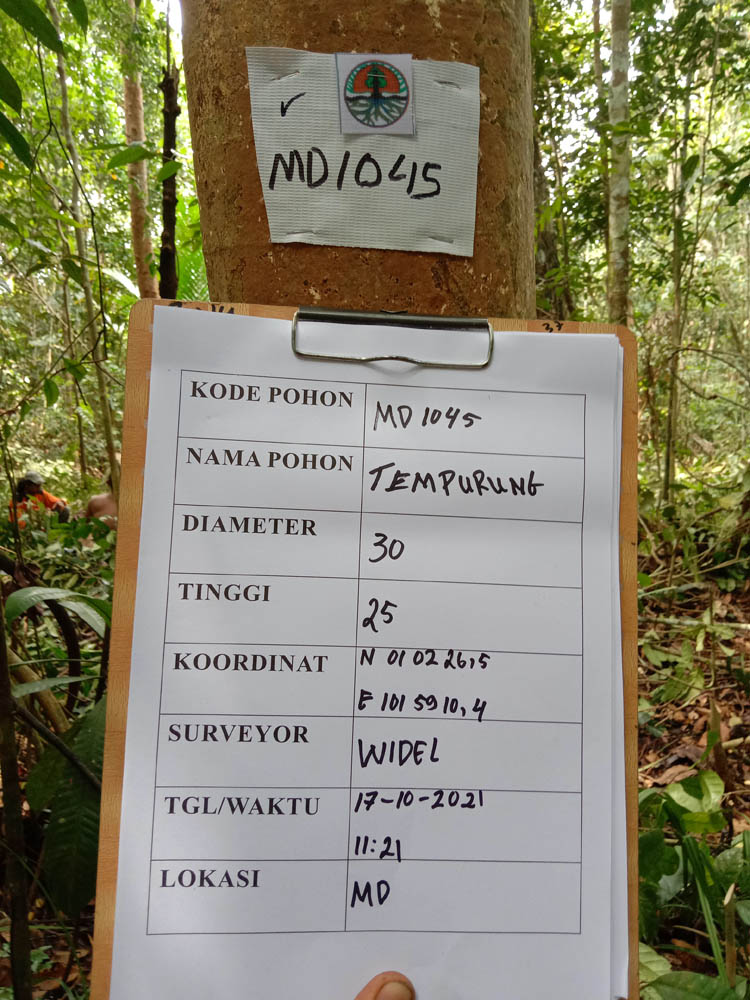 MD1045
KODE POHON MD 1045
NAMA POHON TEMPURUNG
DIAMETER 30
TINGGI 25
KOORDINAT N 01 02 26,5
E 101 59 10,4
SURVEYOR WIDEL
TGL/WAKTU 17-10-2021
11:21
LOKASI MD